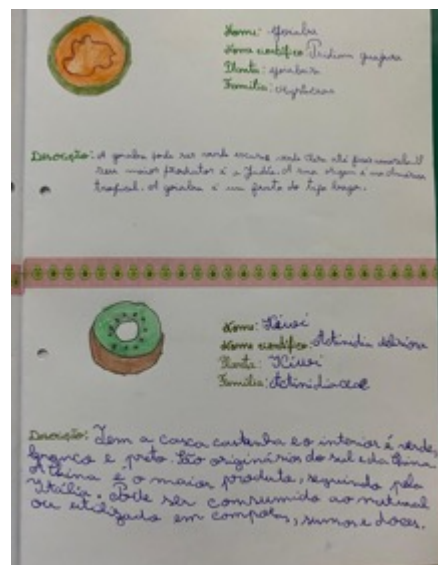 Nome: goiaba
Nome científico: Psidium guajava
Planta: goiabeira
Família:
Descrição: A goiaba pode ser verde escuro, verde claro até ficar amarela. O
seu maior produtor é a Índia. A sua origem é na América
tropical. A goiaba é um fruto do tipo baga.
Nome: Kiwi
Nome científico: Actinidia deliciosa
Planta: Kiwi
Família: Actinidiaceae
Descrição: Tem a casca castanha e o interior é verde,
branco e preto. São originários do sul e da China.
A China é o maior produto, seguindo pela
Itália. Pode ser consumido ao natural
ou utilizado em compotas, sumos e doces.